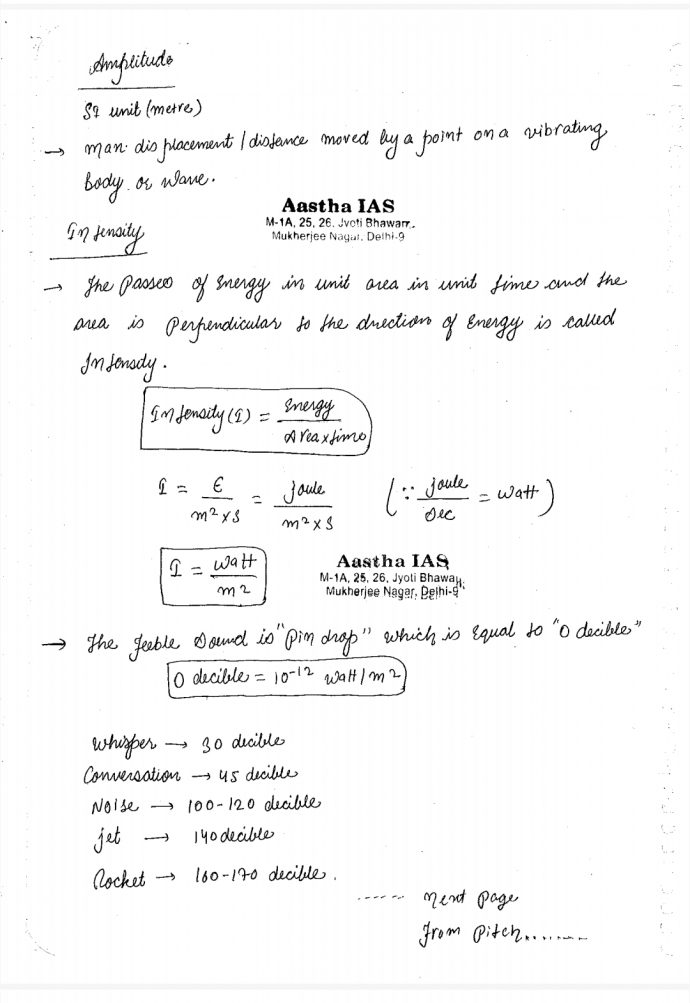 Amplitude
SI unit (metre)
→ man. displacement / distance moved by a point on a vibrating
body or wave.
Aastha IAS
M-1A, 25, 26, Jyoti Bhawan,
Mukherjee Nagar, Delhi-9
Intensity
→ The Passes of Energy in unit area in unit time and the
area is Perpendicular to the direction of Energy is called
Intensity.
Intensity (I) = Energy / Area x time
I = E / m² x s = Joule / m² x s (∵ Joule / sec = watt)
I = watt / m²
Aastha IAS
M-1A, 25, 26, Jyoti Bhawan,
Mukherjee Nagar, Delhi-9
→ The feeble sound is "Pin drop" which is Equal to "0 decible"
0 decible = 10⁻¹² watt/m²
Whisper → 30 decible
Conversation → 45 decible
Noise → 100-120 decible
jet → 140 decible
Rocket → 160-170 decible.
------ next page
From Pitch........